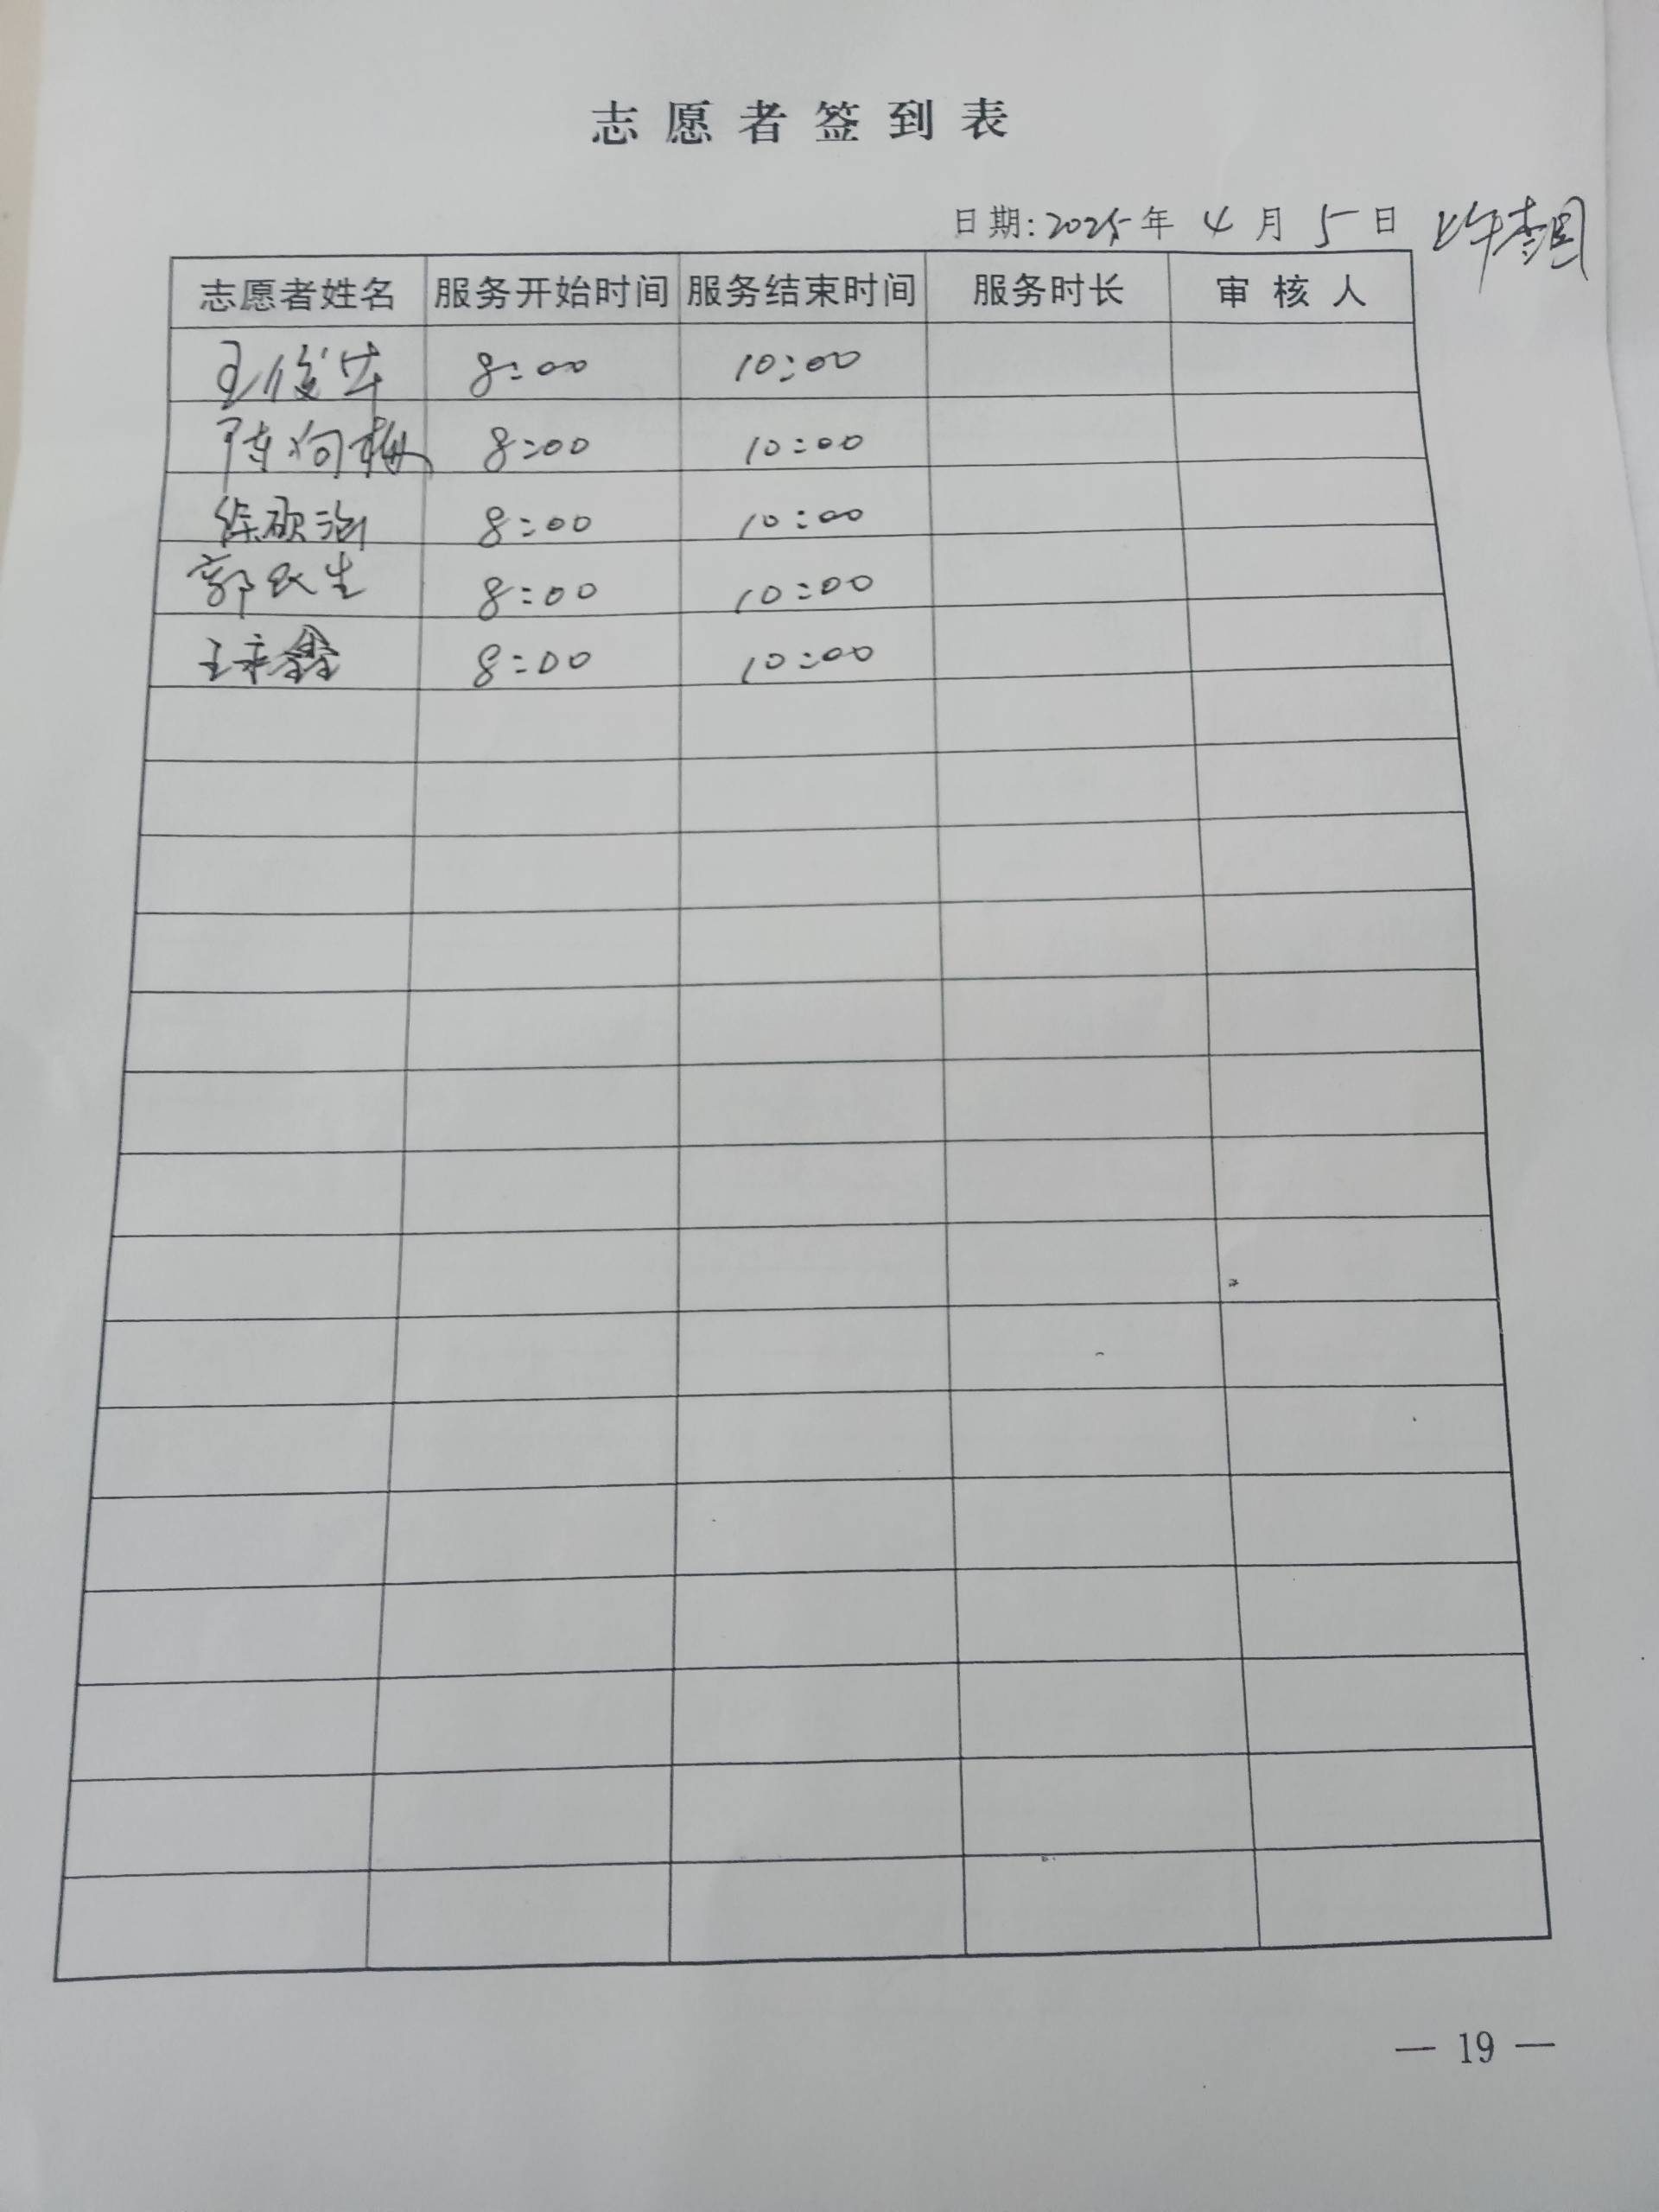 志愿者签到表
日期:2025年 4月 5日 上午
志愿者姓名 服务开始时间 服务结束时间 服务时长 审核人
8:00 10:00
陈向梅 8:00 10:00
徐硕 8:00 10:00
郭 生 8:00 10:00
王 鑫 8:00 10:00
— 19 —